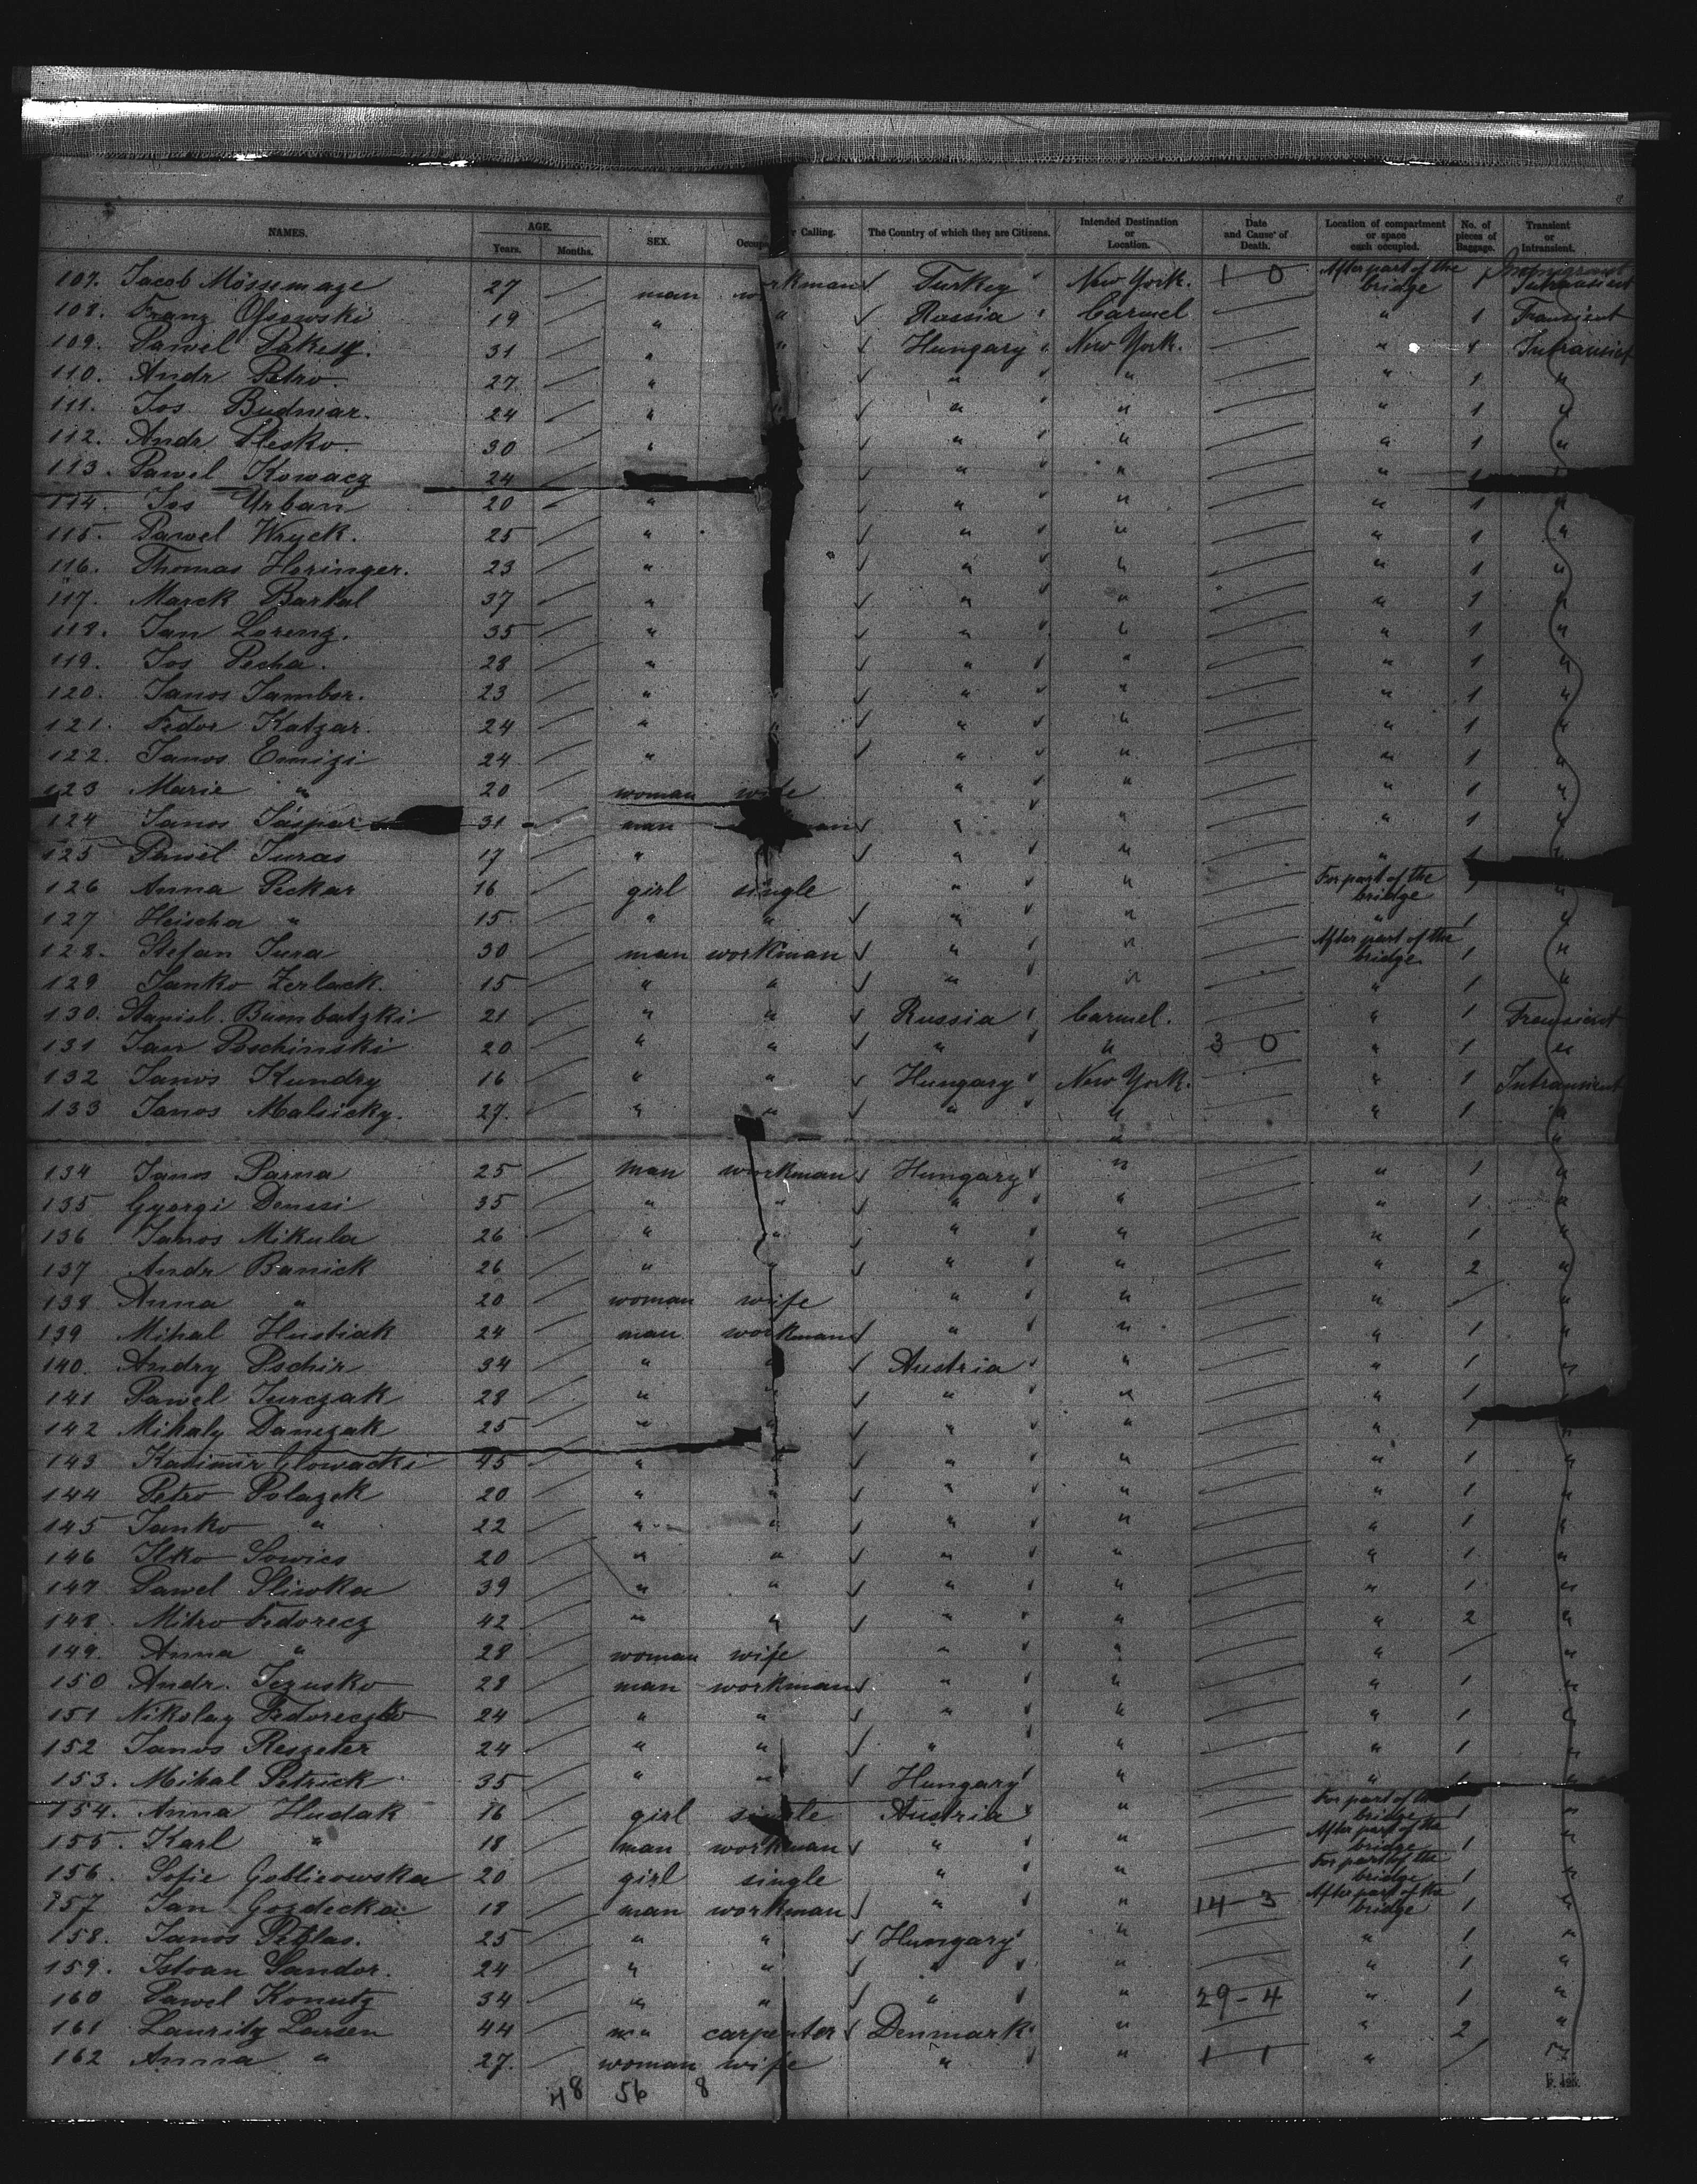 NAMES. AGE. Years. Months. SEX. Occupa r Calling. The Country of which they are Citizens. Intended Destination or Location. Date and Cause of Death. Location of compartment or space each occupied. No. of pieces of Baggage. Transient or Intransient.
107. Jacob Mössemage 27 man workman Turkey New York. 1 0 After part of the bridge 1
108. Franz 19 " " Russia Carmel " 1 Transient
109. Pawel 31 " " Hungary New York. " 1 Intransient
110. Andr Petro. 27 " " " " 1 "
111. Jos. Budmar. 24 " " " " 1 "
112. Andr Plesko. 30 " " " " 1 "
113. Pawel Kowacz 24 " " "
114. Jos Urban 20 " " " " 1 "
115. Pawel Wryck. 25 " " " " 1 "
116. Thomas Horinger. 23 " " " " " 1 "
117. Marek Bartal 37 " " " " 1 "
118. Jan Lorenz. 35 " " " " 1 "
119. Jos Pecha. 28 " " " " 1 "
120. Janos Jambor. 23 " " " " 1 "
121. Fedor Katzar. 24 " " " " " 1 "
122. Janos Emizi 24 " " " " 1 "
123 Marie " 20 woman wife " " " 1 "
124 Janos Jáspar 31 man " " " 1 "
125 Pawel Juras 17 " " " "
126 Anna Peckar 16 girl single " " For part of the bridge 1 "
127 Heischa " 15 " " " " " 1 "
128. Stefan Jura 30 man workman " " After part of the bridge. 1 "
129 Janko Zerlack. 15 " " " " " 1 "
130. Stanisl. Bumbatzki 21 " " Russia Carmel. " 1 Transient
131 Jan Poschinski 20 " " " " 3 0 " 1 "
132 Janos Kundry 16 " " Hungary New York. " 1 Intransient
133 Janos Malsicky. 27. " " " " " 1 "
134 Janos Parna 25 man workman Hungary " " 1 "
135 Gyorgi Denssi 35 " " " " " 1 "
136 Janos Mikula 26 " " " " " 1 "
137 Andr Banick 26 " " " " " 2 "
138 Anna " 20 woman wife " " " "
139 Mihal Hustiak 24 man workman " " " 1 "
140. Andry Pschir 34 " " Austria " " 1 "
141 Pawel Jurczak 28 " " " " " 1
142 Mihaly Danczak 25 " " " " " 1 "
143 Kasimir Glowacki 45 " " " " " 1 "
144 Petro Polazek 20 " " " " " 1 "
145 Janko " 22 " " " " " 1 "
146 Ilko Sowics 20 " " " " " 1 "
147 Pawel Sliwka 39 " " " " " 1 "
148. Mitro Fedorecz 42 " " " " " 2 "
149. Anna " 28 woman wife " " " "
150 Andr. Jozusko 28 man workman " " " 1 "
151 Nikolay Fedoreczko 24 " " " " " 1 "
152 Janos Reszeter 24 " " " " " 1 "
153. Mihal Petrick 35 " " Hungary " " 1 "
154. Anna Hudak 16 girl single Austria " For part of the bridge 1 "
155. Karl " 18 man workman " " After part of the bridge 1 "
156. Sofie Goblicowska 20 girl single " " For part of the bridge 1 "
157 Jan Gozdecka 18 man workman " " 14 - 3 After part of the bridge 1 "
158. Janos Petlas. 25 " " Hungary " " 1 "
159. Istvan Sandor. 24 " " " " " 1 "
160 Pawel Konutz 34 " " " " 29 - 4 " 1 "
161 Lauritz Larsen 44 carpenter Denmark " " 2 "
162 Anna " 27. woman wife " " 1 1 "
48 56 8